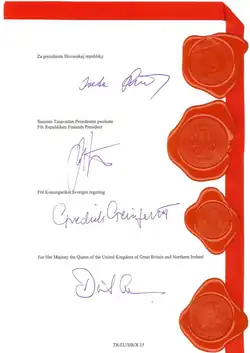 Za prezidenta Slovenskej republiky
Suomen Tasavallan Presidentin puolesta
För Republiken Finlands President
För Konungariket Sveriges regering
For Her Majesty the Queen of the United Kingdom of Great Britain and Northern Ireland
TR/EU/HR/X 15